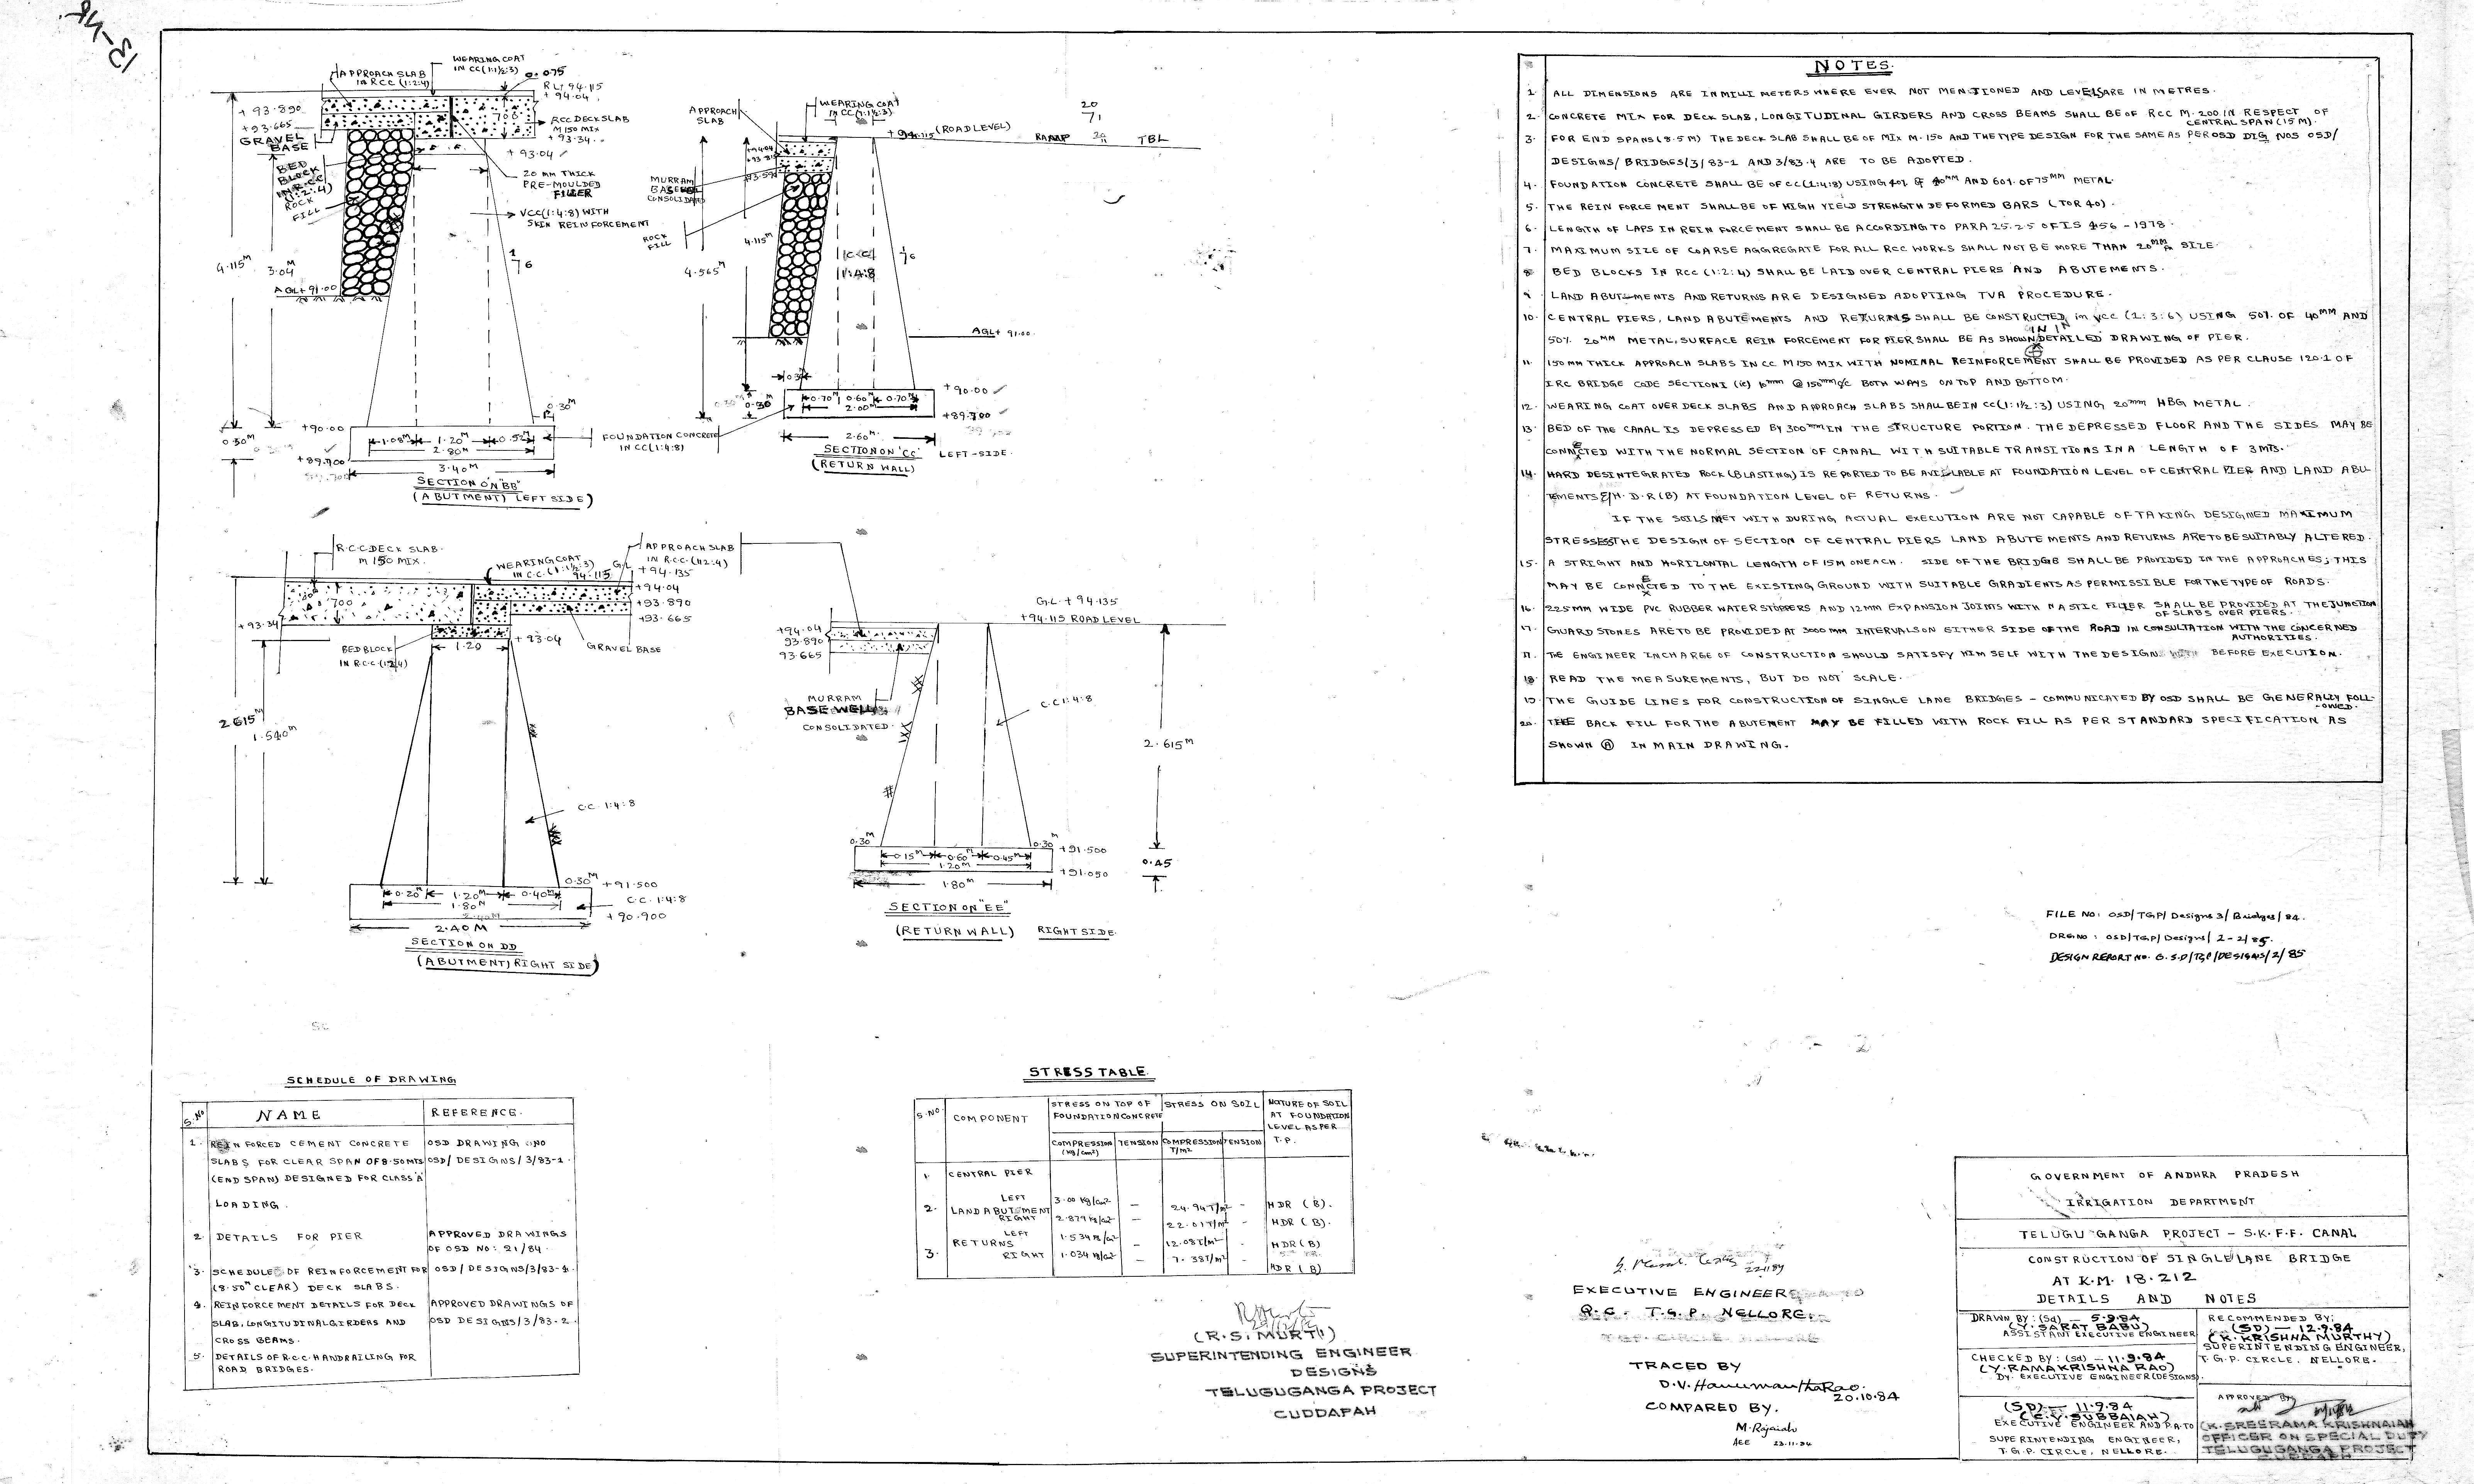 13-1/45.
WEARING COAT
IN CC(1:1½:3)
APPROACH SLAB
IN RCC (1:2:4)
0.075
RL+94.115
+94.04
+93.890
+93.665
GRAVEL
BASE
700
RCC DECK SLAB
M 150 MIX
+93.34
+93.04
BED
BLOCK
IN RCC
(1:2:4)
ROCK
FILL
20 MM THICK
PRE-MOULDED
FILLER
VCC(1:4:8) WITH
SKIN REINFORCEMENT
1
6
4.115M
3.04M
AGL+91.00
0.30M
+90.00
0.30M
+89.700
1.08M 1.20M 0.52M
2.80M
3.40M
FOUNDATION CONCRETE
IN CC(1:4:8)
SECTION ON "BB"
(ABUTMENT) LEFT SIDE)
APPROACH
SLAB
WEARING COAT
IN CC(1:1½:3)
+94.115 (ROAD LEVEL)
20
71
RAMP
TBL
+94.04
MURRAM
BASE WELL
CONSOLIDATED
ROCK
FILL
4.115M
4.565M
C.C.
1:4:8
1
6
AGL+ 91.00
0.3M
+90.00
0.70M 0.60M 0.70M
2.00M
+89.700
2.60M
SECTION ON "CC"
LEFT-SIDE.
(RETURN WALL)
R.C.C DECK SLAB.
M 150 MIX.
WEARING COAT
IN C.C.(1:1½:3)
94.115
G.L
+94.135
APPROACH SLAB
IN R.C.C.(1:2:4)
+94.04
+93.890
+93.665
700
+93.34
+93.04
BED BLOCK
IN R.C.C (1:2:4)
1.20
GRAVEL BASE
2.615M
1.540M
C.C. 1:4:8
0.30M +91.500
0.20M 1.20M 0.40M
1.80M
2.40M
C.C. 1:4:8
+90.900
2.40M
SECTION ON DD
(ABUTMENT) RIGHT SIDE)
G.L +94.135
+94.115 ROAD LEVEL
+94.04
93.890
93.665
MURRAM
BASE WELL
CONSOLIDATED
C.C 1:4:8
2.615M
0.30M
0.30M
+91.500
0.15M 0.60M 0.45M
1.20M
0.45
+91.050
1.80M
SECTION ON "EE"
(RETURN WALL) RIGHT SIDE
NOTES.
1. ALL DIMENSIONS ARE IN MILLI METERS WHERE EVER NOT MENTIONED AND LEVELS ARE IN METRES.
2. CONCRETE MIX FOR DECK SLAB, LONGITUDINAL GIRDERS AND CROSS BEAMS SHALL BE OF RCC M-200 IN RESPECT OF
CENTRAL SPAN (15 M).
3. FOR END SPANS (8.5 M) THE DECK SLAB SHALL BE OF MIX M-150 AND THE TYPE DESIGN FOR THE SAME AS PER OSD DIG NOS OSD/
DESIGNS/ BRIDGES/3/83-1 AND 3/83.4 ARE TO BE ADOPTED.
4. FOUNDATION CONCRETE SHALL BE OF CC(1:4:8) USING 40% OF 40MM AND 60% OF 75MM METAL.
5. THE REIN FORCE MENT SHALL BE OF HIGH YIELD STRENGTH DEFORMED BARS (TOR 40).
6. LENGTH OF LAPS IN REIN FORCEMENT SHALL BE ACCORDING TO PARA 25.25 OF IS 456 - 1978.
7. MAXIMUM SIZE OF COARSE AGGREGATE FOR ALL RCC WORKS SHALL NOT BE MORE THAN 20MM SIZE.
8. BED BLOCKS IN RCC (1:2:4) SHALL BE LAID OVER CENTRAL PIERS AND ABUTEMENTS.
9. LAND ABUTMENTS AND RETURNS ARE DESIGNED ADOPTING TVA PROCEDURE.
10. CENTRAL PIERS, LAND ABUTEMENTS AND RETURNS SHALL BE CONSTRUCTED in VCC (1:3:6) USING 50% OF 40MM AND
50% 20MM METAL, SURFACE REIN FORCEMENT FOR PIER SHALL BE AS SHOWN IN DETAILED DRAWING OF PIER.
11. 150 MM THICK APPROACH SLABS IN CC M150 MIX WITH NOMINAL REINFORCEMENT SHALL BE PROVIDED AS PER CLAUSE 120.1 OF
IRC BRIDGE CODE SECTION I (ie) 10mm @ 150mm c/c BOTH WAYS ON TOP AND BOTTOM.
12. WEARING COAT OVER DECK SLABS AND APPROACH SLABS SHALL BE IN CC(1:1½:3) USING 20mm HBG METAL.
13. BED OF THE CANAL IS DEPRESSED BY 300mm IN THE STRUCTURE PORTION. THE DEPRESSED FLOOR AND THE SIDES MAY BE
CONNECTED WITH THE NORMAL SECTION OF CANAL WITH SUITABLE TRANSITIONS IN A LENGTH OF 3 MTS.
14. HARD DESINTEGRATED ROCK (BLASTING) IS REPORTED TO BE AVAILABLE AT FOUNDATION LEVEL OF CENTRAL PIER AND LAND ABU
TEMENTS & H.D.R(B) AT FOUNDATION LEVEL OF RETURNS.
IF THE SOILS MET WITH DURING ACTUAL EXECUTION ARE NOT CAPABLE OF TAKING DESIGNED MAXIMUM
STRESSES THE DESIGN OF SECTION OF CENTRAL PIERS LAND ABUTEMENTS AND RETURNS ARE TO BE SUITABLY ALTERED.
15. A STRIGHT AND HORIZONTAL LENGTH OF 15M ON EACH. SIDE OF THE BRIDGE SHALL BE PROVIDED IN THE APPROACHES; THIS
MAY BE CONNECTED TO THE EXISTING GROUND WITH SUITABLE GRADIENTS AS PERMISSIBLE FOR THE TYPE OF ROADS.
16. 225 MM WIDE PVC RUBBER WATER STOPPERS AND 12MM EXPANSION JOINTS WITH NASTIC FILLER SHALL BE PROVIDED AT THE JUNCTION
OF SLABS OVER PIERS.
17. GUARD STONES ARE TO BE PROVIDED AT 3000 MM INTERVALS ON EITHER SIDE OF THE ROAD IN CONSULTATION WITH THE CONCERNED
AUTHORITIES.
17. THE ENGINEER INCHARGE OF CONSTRUCTION SHOULD SATISFY HIM SELF WITH THE DESIGN BEFORE EXECUTION.
18. READ THE MEASUREMENTS, BUT DO NOT SCALE.
19. THE GUIDE LINES FOR CONSTRUCTION OF SINGLE LANE BRIDGES - COMMUNICATED BY OSD SHALL BE GENERALLY FOLL-
-OWED.
20. THE BACK FILL FOR THE ABUTEMENT MAY BE FILLED WITH ROCK FILL AS PER STANDARD SPECIFICATION AS
SHOWN Ⓐ IN MAIN DRAWING.
FILE NO: OSD/TGP/Designs 3/Bridges/84.
DRG NO: OSD/TGP/Designs/2-2/85.
DESIGN REPORT NO. O.S.D/TGP/DESIGNS/2/85
SCHEDULE OF DRAWING
S.NO NAME REFERENCE.
1. REIN FORCED CEMENT CONCRETE OSD DRAWING NO
SLABS FOR CLEAR SPAN OF 8.50 MTS OSD/DESIGNS/3/83-1.
(END SPAN) DESIGNED FOR CLASS 'A'
LOADING.
2. DETAILS FOR PIER APPROVED DRAWINGS
OF OSD NO: 21/84.
3. SCHEDULE OF REINFORCEMENT FOR OSD/DESIGNS/3/83-4.
(8.50M CLEAR) DECK SLABS.
4. REIN FORCEMENT DETAILS FOR DECK APPROVED DRAWINGS OF
SLAB, LONGITUDINAL GIRDERS AND OSD DESIGNS/3/83-2.
CROSS BEAMS.
5. DETAILS OF R.C.C HANDRAILING FOR
ROAD BRIDGES.
STRESS TABLE.
S.NO. COMPONENT STRESS ON TOP OF FOUNDATION CONCRETE STRESS ON SOIL NATURE OF SOIL AT FOUNDATION LEVEL AS PER T.P.
COMPRESSION (Kg/cm²) TENSION COMPRESSION T/m² TENSION
1. CENTRAL PIER
2. LAND ABUTMENT LEFT 3.00 Kg/cm² - 24.94 T/m² - HDR (B).
RIGHT 2.879 Kg/cm² - 22.01 T/m² - HDR (B).
3. RETURNS LEFT 1.534 Kg/cm² - 12.08 T/m² - HDR (B)
RIGHT 1.034 Kg/cm² - 7.38 T/m² - HDR (B)
(R.S. MURTI)
SUPERINTENDING ENGINEER
DESIGNS
TELUGUGANGA PROJECT
CUDDAPAH
EXECUTIVE ENGINEER
T.G.P. NELLORE.
TRACED BY
D.V. HanumanthaRao.
20.10.84
COMPARED BY.
M. Rajaiah
AEE 23.11.84
GOVERNMENT OF ANDHRA PRADESH
IRRIGATION DEPARTMENT
TELUGU GANGA PROJECT - S.K.F.F. CANAL
CONSTRUCTION OF SINGLE LANE BRIDGE
AT K.M. 18.212
DETAILS AND NOTES
DRAWN BY: (Sd) - 5.9.84
(Y. SARAT BABU)
ASSISTANT EXECUTIVE ENGINEER
RECOMMENDED BY:
(SD) - 12.9.84
(K. KRISHNA MURTHY)
SUPERINTENDING ENGINEER,
T.G.P. CIRCLE, NELLORE.
CHECKED BY: (Sd) - 11.9.84
(Y. RAMAKRISHNA RAO)
DY. EXECUTIVE ENGINEER (DESIGNS).
(SD) - 11.9.84
(C.V. SUBBAIAH)
EXECUTIVE ENGINEER AND P.A. TO
SUPERINTENDING ENGINEER,
T.G.P. CIRCLE, NELLORE.
APPROVED BY
(K. SREERAMA KRISHNAIAH
OFFICER ON SPECIAL DUTY
TELUGUGANGA PROJECT
CUDDAPAH